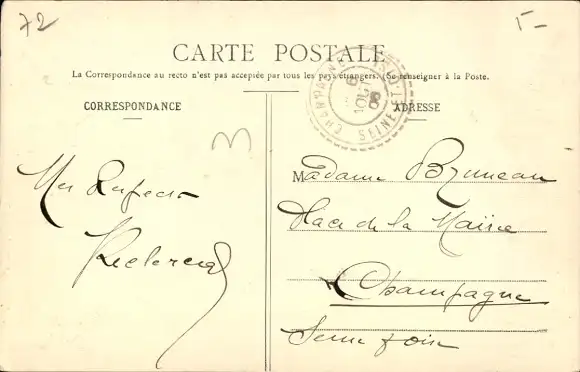 72
5-
CARTE POSTALE
La Correspondance au recto n'est pas acceptée par tous les pays étrangers. (Se renseigner à la Poste.
CORRESPONDANCE
ADRESSE
CHAMPAGNE
SEINE ET
3
Mes Respects
Leclercq
Madame Bruneau
Place de la Mairie
Champagne
Seine & oise